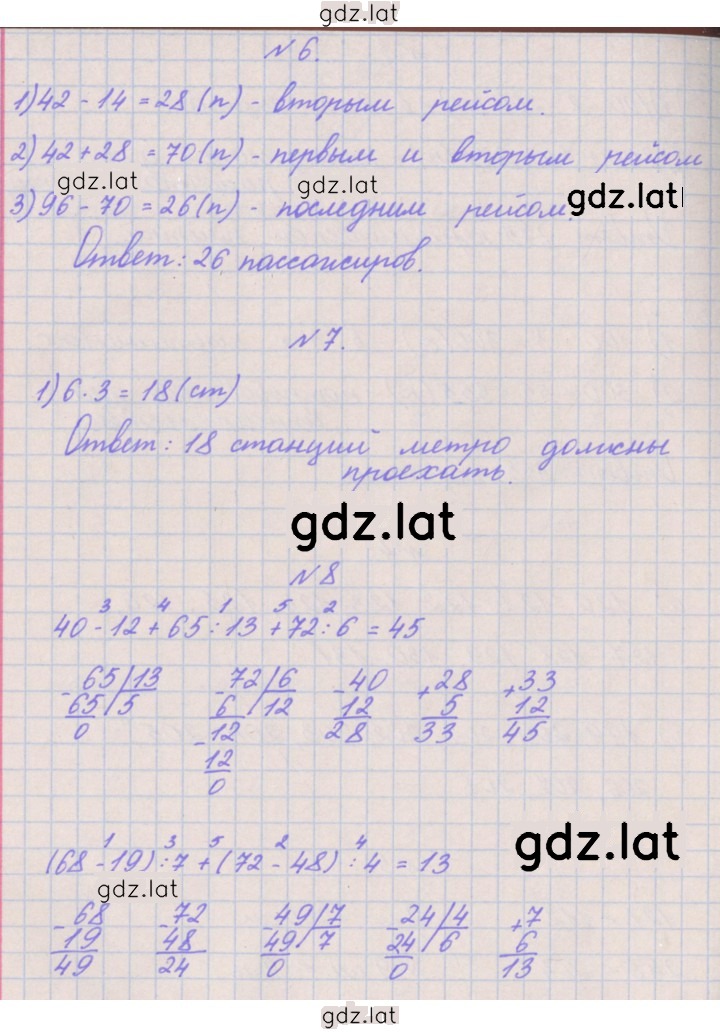 gdz.lat
№6.
1) 42 - 14 = 28 (п) - вторым рейсом.
2) 42 + 28 = 70 (п) - первым и вторым рейсом
gdz.lat gdz.lat gdz.lat
3) 96 - 70 = 26 (п) - последним рейсом.
Ответ: 26 пассажиров.
№7.
1) 6 · 3 = 18 (ст)
Ответ: 18 станций метро должны
проехать.
gdz.lat
№8
3 4 1 5 2
40 - 12 + 65 : 13 + 72 : 6 = 45
- 65 | 13 - 72 | 6 - 40 + 28 + 33
65 | 5 6 | 12 12 5 12
0 - 12 28 33 45
12
0
gdz.lat
1 3 5 2 4
(68 - 19) : 7 + (72 - 48) : 4 = 13
gdz.lat
- 68 - 72 49 | 7 - 24 | 4 + 7
19 48 49 | 7 24 | 6 6
49 24 0 0 13
gdz.lat